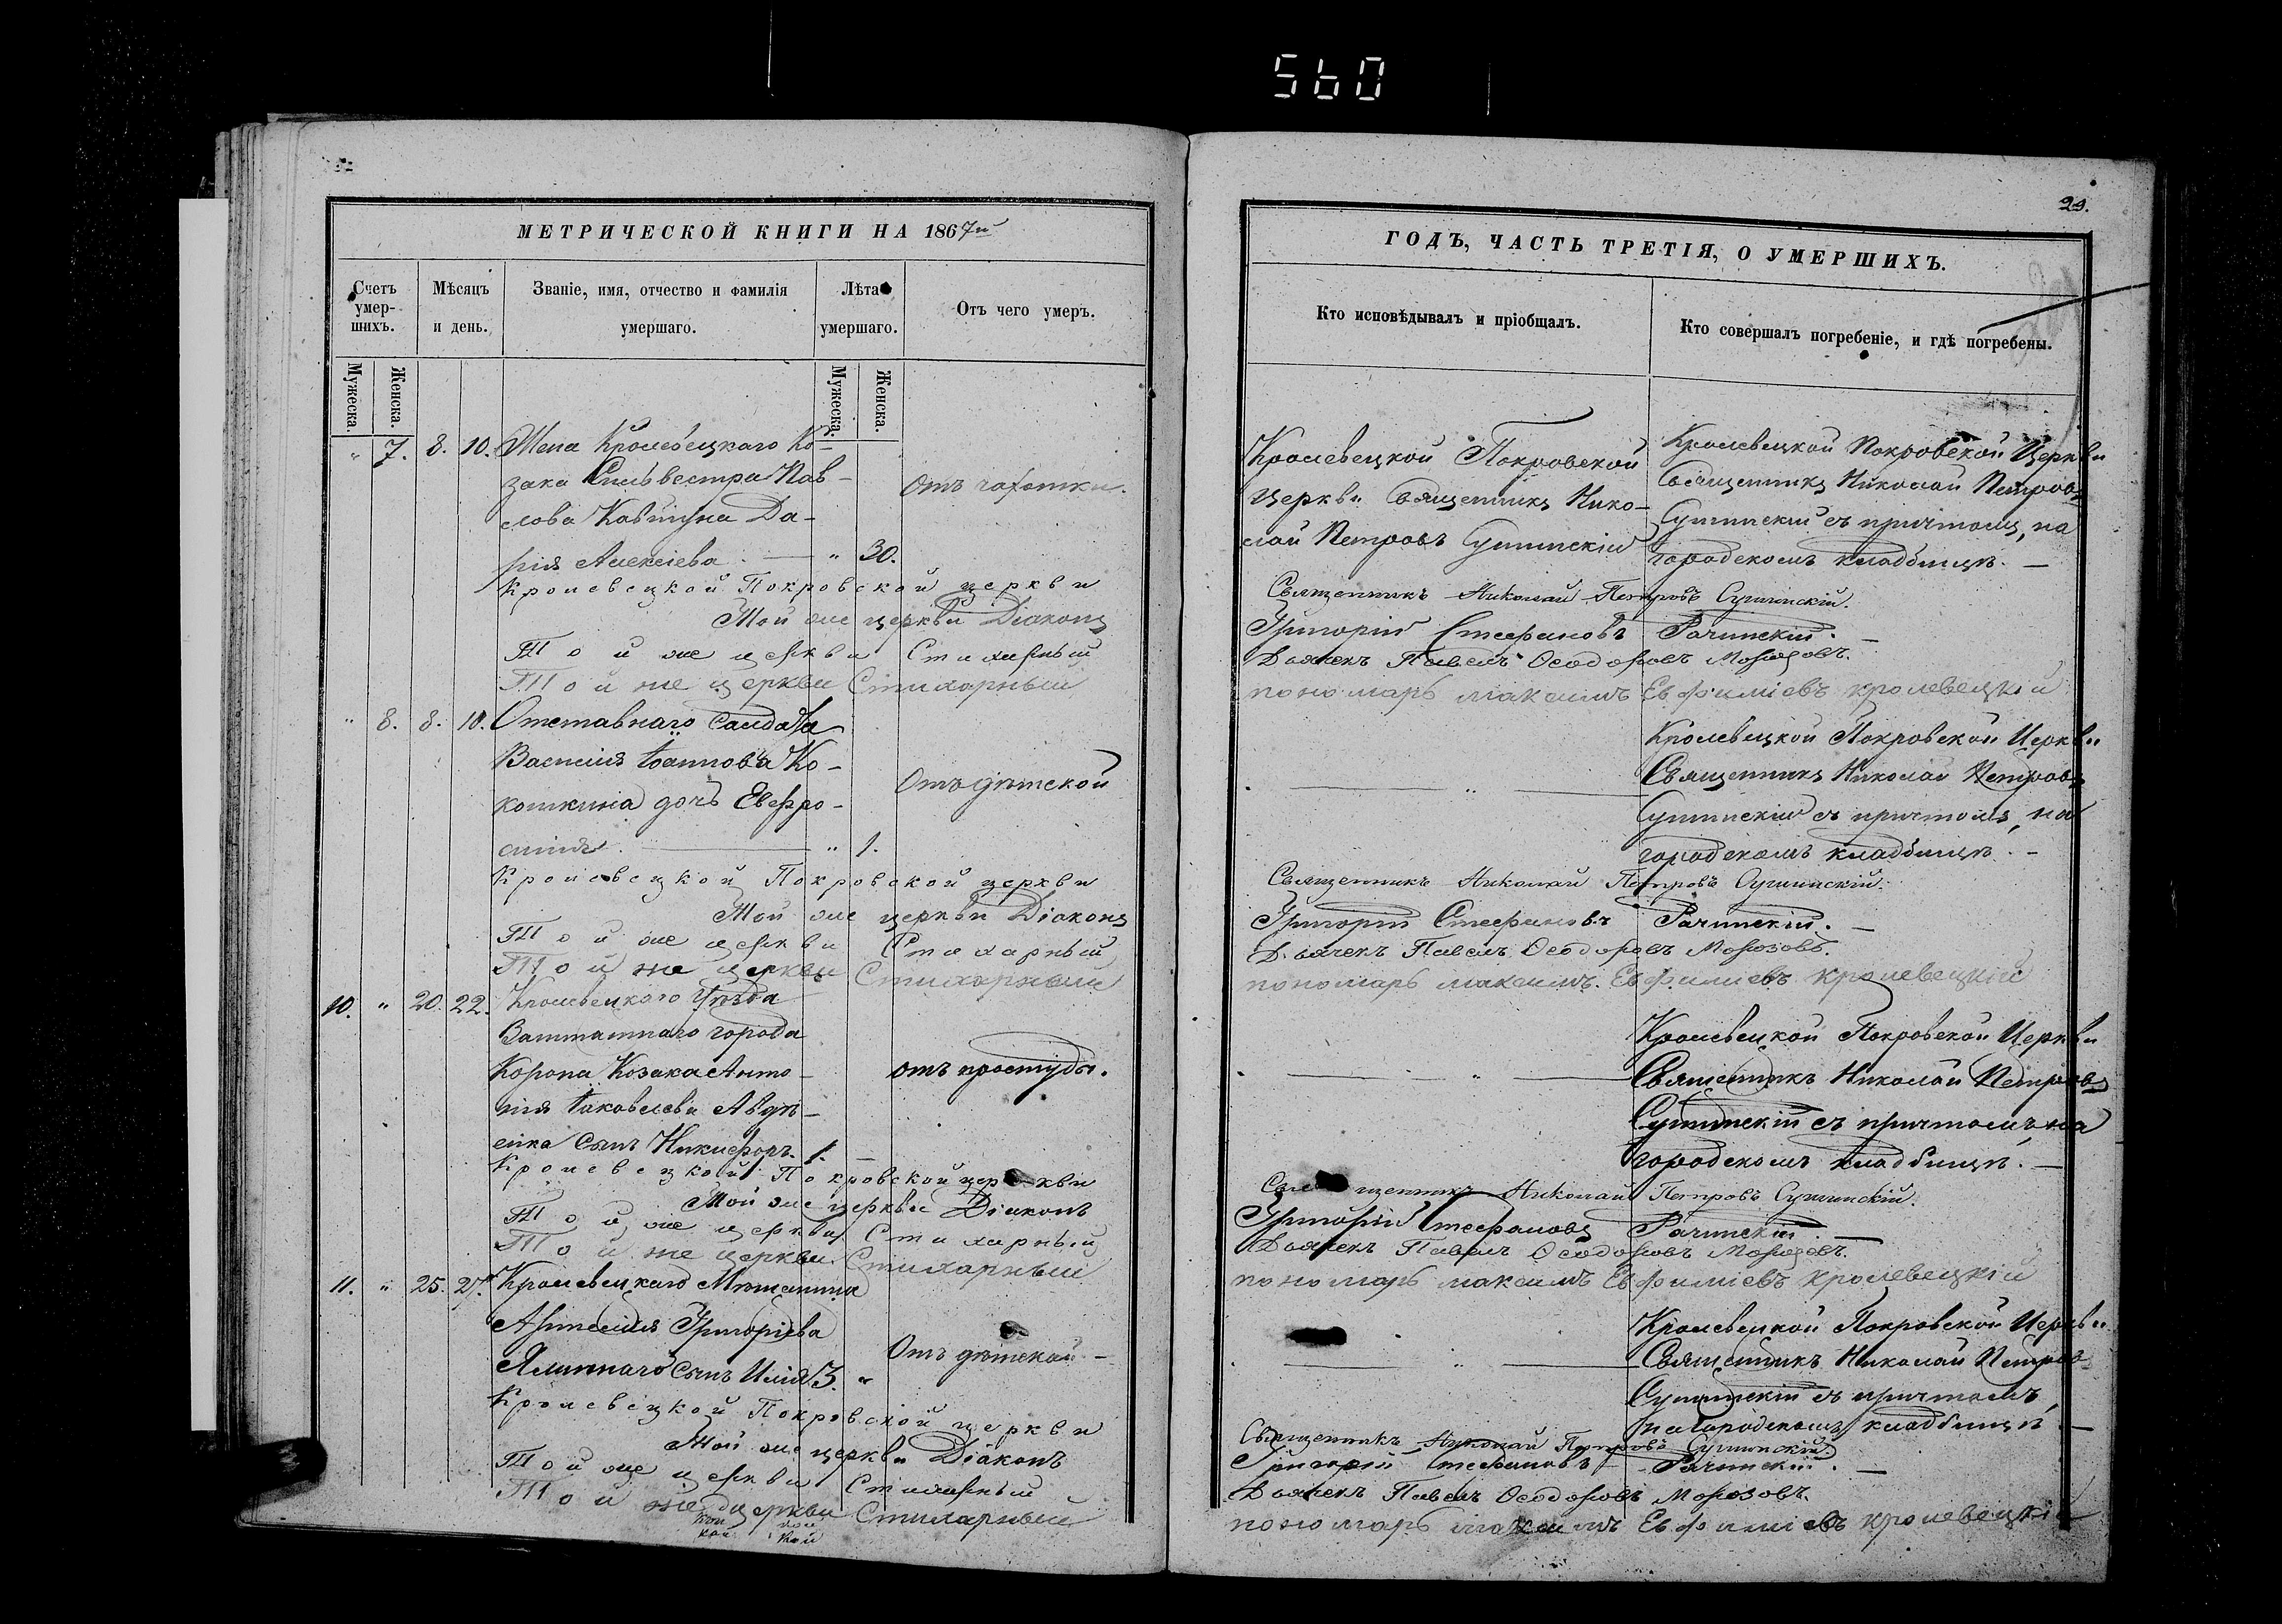 560
29.
МЕТРИЧЕСКОЙ КНИГИ НА 1867й
Счетъ умерших. Мѣсяцъ и день. Званіе, имя, отчество и фамилія умершаго. Лѣта умершаго. Отъ чего умеръ.
Мужеска. Женска. Мужеска. Женска.
" 7. 8. 10. Жена Кролевецкаго Ко-
зака Сильвестра Пав-
лова Дa-
рія Алексіева " 30.
Отъ чахотки.
Кролевецкой Покровской церкви
Той же церкви Діаконъ
Той же церкви Стихарный
Той же церкви Стихарный
" 8. 8. 10. Отставнаго Солдата
Василія Іоаннова Ко-
кошкина дочь Евфро-
синія " 1.
Отъ дѣтской
Кролевецкой Покровской церкви
Той же церкви Діаконъ
Той же церкви Стихарный
Той же церкви Стихарный
10. " 20. 22. Кролевецкаго Уѣзда
Заштатнаго города
Коропа Козака Анто-
нія Іаковлева Авдѣ-
енка сынъ Никифоръ. 1. —
отъ простуды.
Кролевецкой Покровской церкви
Той же церкви Діаконъ
Той же церкви Стихарный
Той же церкви Стихарный
11. " 25. 27. Кролевецкаго Мѣщанина
Григоріева
сынъ Илія 3. "
Отъ дѣтской
Кролевецкой Покровской церкви
Той же церкви Діаконъ
Той же церкви Стихарный
Той же церкви Стихарный
ГОДЪ, ЧАСТЬ ТРЕТІЯ, О УМЕРШИХЪ.
Кто исповѣдывалъ и пріобщалъ. Кто совершалъ погребеніе, и гдѣ погребены.
Кролевецкой Покровской
Церкви Священникъ Нико-
лай Петровъ
Кролевецкой Покровской Церкви
Священникъ Николай Петровъ
съ причтомъ, на
городскомъ кладбищѣ. —
Священникъ Николай Петровъ
Григорій Стефановъ Рачинскій. —
Дьячекъ Павелъ Ѳеодоровъ Морозовъ.
пономарь максимъ Евфиміевъ кролевецкій
Кролевецкой Покровской Церкви
Священникъ Николай Петровъ
съ причтомъ, на
городскомъ кладбищѣ. —
Священникъ Николай Петровъ
Григорій Стефановъ Рачинскій. —
Дьячекъ Павелъ Ѳеодоровъ Морозовъ.
пономарь максимъ Евфиміевъ кролевецкій
Кролевецкой Покровской Церкви
Священникъ Николай Петровъ
съ причтомъ, на
городскомъ кладбищѣ. —
Священникъ Николай Петровъ
Григорій Стефановъ Рачинскій. —
Дьячекъ Павелъ Ѳеодоровъ Морозовъ.
пономарь максимъ Евфиміевъ кролевецкій
Кролевецкой Покровской Церкви
Священникъ Николай Петровъ
съ причтомъ,
на городскомъ кладбищѣ. —
Священникъ Николай Петровъ
Григорій Стефановъ Рачинскій. —
Дьячекъ Павелъ Ѳеодоровъ Морозовъ.
пономарь максимъ Евфиміевъ кролевецкій